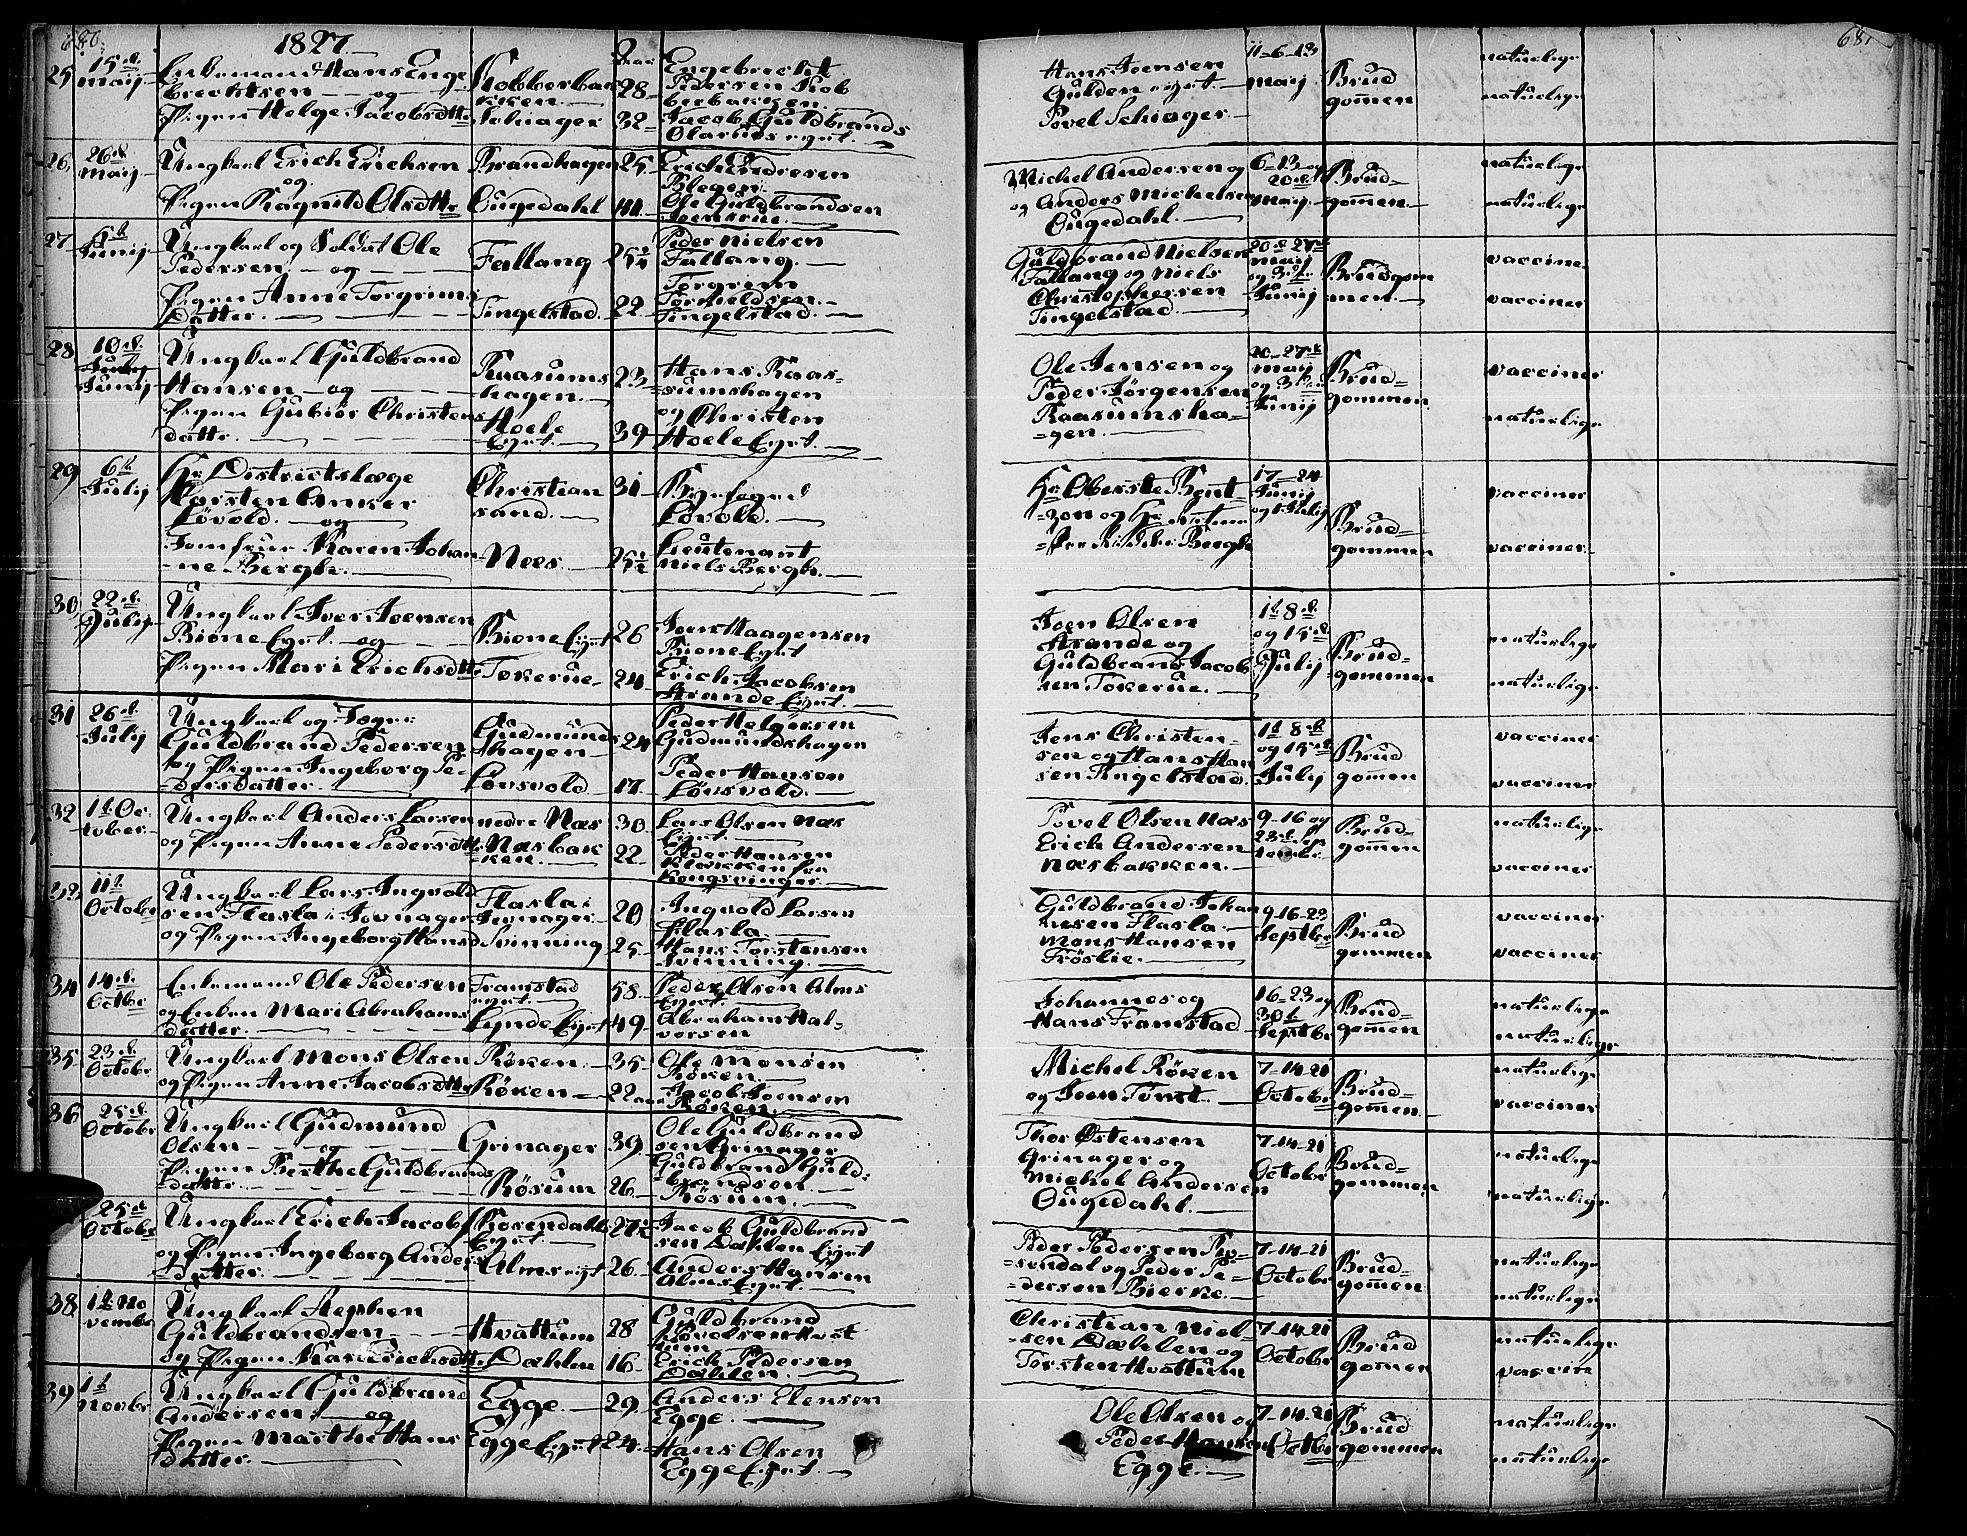 686.
1827
25 15de Maij Enkemand Hans Enge
brechtsen og
Pigen Helge Jacobsdttr
Kobberbak
kken.
Schiager
28
32
Engebrecht
Pedersen Kob
berbakken.
Jacob Guldbrands
Olaruds eyrt.
26 26de Maij Ungkarl Erich Erichsen
og
Pigen Ragnild Olsdttr
Brandhagen
Ougedahl
25
Erich
Ole Guldbrandsen
27 Junij Ungkarl og Soldat Ole
Pedersen og
Pigen Anne Torgrims
Datter.
Fallang
Tingelstad.
25
22
Peder Nielsen
Fallang.
Torgrim
Tingelstad.
28 10de Junij Ungkarl Guldbrand
Hansen og
Pigen Gubiør Christens
dattr.
Raasums
hagen.
Hoele
Eyrt.
23
39
Hans Raas=
=sumshagen
og Christen
Hoele Eyrt.
29 6te Julij Hr. Districtslæge
Karsten Anker
Løvold. og
Jomfrue Karen Johan
=ne Bergh.
Christian
sand.
Næs.
31
25 1/2
Løvold.
Lieutenant
Niels Bergh.
30 22de Julij Ungkarl Iver Joensen
Bione Eyrt. og
Pigen Mari Erichsdttr
Bione Eyrt
Tokerue
26
24
Joen Haagensen
Bione Eyrt
Erich Jacobsen
Strande Eyrt.
31 26de Julij Ungkarl og Jæger
Guldbrand Pedersen
og Pigen Ingeborg Pe=
dersdatter.
Gudmunds
hagen
Løvsvold
24
17
Peder Helgersen
Gudmundshagen
Peder Hansen
Løvsvold.
32 1te Oc=
tober Ungkarl Anders Larsen
og Pigen Anne Pedersdttr
nedre Næs
Næsbak
ken.
30
22
Lars Olsen Næs
Eyrt.
Peder Hansen
Klokken fra
Kongsvinger.
11te October Ungkarl Lars Ingvold
sen Flasla i Jevnager
og Pigen Ingeborg Hansd
Flasla i
Jevnager
Svinning
20
25
Ingvold Larsen
Flasla.
Hans Torstensen
Svinning.
34 14de Octbr Enkemand Ole Pedersen
og Enken Mari Abrahams
datter.
Framstad
eyrt.
Lynde Eyrt
58
49
Peder Olsen Alms
Eyrt
Abraham Hal=
vorsen
35 23de Octobr Ungkarl Mons Olsen
og Pigen Anne Jacobsdttr
Røken.
Røken
35
22 aar
Ole Monsen
Røken.
Jacob Joensen
Røken.
36 25de Octobr Ungkarl Gudmund
Olsen og
Pigen Berthe Guldbrands
datter.
Grinager
Røsum
39
26
Ole Guldbrand
sen Grinager
Guldbrand Guld=
=brandsen
Røsum.
25de Octobr Ungkarl Erich Jacobs
og Pigen Ingeborg Anders
Datter.
Rosendahl
Eyrt.
Alms eyrt
27 1/2
26
Jacob Guldbrand
sen Dæhlen Eyrt
Anders Hansen
Alms Eyrt.
38 1te No
vembr Ungkarl Stephen
Guldbrandsen
og Pigen Kari Erichsdttr
Hvattum
Dæhlen
28
16
Guldbrand
Erich Pedersen
Dæhlen.
39 1te Novbr Ungkarl Guldbrand
Andersen. og
Pigen Marthe Hans
Datter.
Egge
Egge Eyrt
29
24
Anders Elensen
Egge.
Hans Olsen
Egge Eyrt.
681
Hans Joensen
Gulden eyrt.
Povel Schiager
11-6-13
Maij
Brud
gommen
naturlige
naturlige
Michel Andersen og
og Anders Michelsen
Ougedahl.
6-13 og
20de
Maij
Brud=
gommen.
naturlige
naturlige
Guldbrand Nielsen
Fallang og Niels
Christophersen
Tingelstad.
20de 27de
Maij
og 3die
Junij
Brudgom
men.
vacciner
vacciner
Ole Jensen og
Peder Jørgensen
Raasumsha=
=gen.
20-27de
Maij
og 3die
Junij
Brud=
gommen
vacciner
naturlige
Hr. Oberste Bent=
=zon og Hr.
Bergh
17-24
Junij
og 1 Julij
Brud=
gommen
vacciner
vacciner
Joen Olsen
Strande og
Guldbrand Jacob
sen Tokerue.
1te 8de
og 15de
Julij
Brud=
gommen
naturlige
naturlige
Jens Christen=
sen og Hans Han
sen Tingelstad.
1te 8de
og 15de
July
Brud
gommen
vacciner
vacciner
Povel Olsen Næs
Erich Andersen
Næsbakken.
9-16 og
23de Sep
tembr.
Brud=
gommen
naturlige
vacciner
Guldbrand Johan
nesen Flasla.
Mons Hansen
Frøslie.
9-16-23
Septbr
Brud
gommen
vacciner
vacciner
Johannes og
Hans Framstad
16-23 og
30te
Septbr
Brud=
gommen
naturlige
naturlige
Michel Røken
og Joen Tømt.
7-14-21
Octobr
Brud=
gommen.
naturlige
vacciner
Thor Østensen
Grinager og
Michel Andersen
Ougedahl.
7-14-21
Octobr
Brud=
gommen
naturlige
naturlige
Peder Pedersen Ro=
=sendal og Peder Pe=
=dersen Bierke.
7-14-21
Octobr
Brud=
gommen
naturlige
naturlige
Christian Niel=
=sen Dæhlen og
Torsten Hvattum
7-14-21
Octobr
Brud
gommen
naturlige
vaccine
Ole Olsen og
Peder
Egge.
7-14-21
Octbr
Brud
gommen
naturlige
naturlige